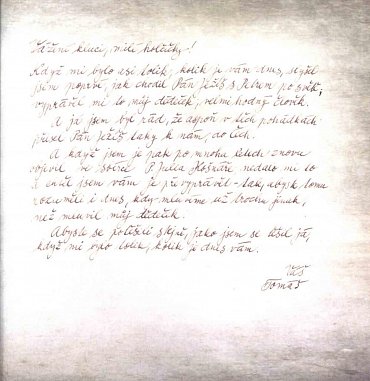 Vážení kluci, milé holčičky!
Když mi bylo asi tolik, kolik je vám dnes, slyšel
jsem poprvé, jak chodil Pán Ježíš s Petrem po světě;
vyprávěl mi to můj dědeček, velmi hodný člověk.
A já jsem byl rád, že aspoň v těch pohádkách
přišel Pán Ježíš taky k nám, do Čech.
A když jsem je pak po mnoha letech znovu
objevil ve sbírce P. Julia Košnáře nedalo mi to
a chtěl jsem vám je převyprávět - tak, abyste tomu
rozuměli i dnes, kdy mluvíme už trochu jinak,
než mluvil můj dědeček.
Abyste se potěšili stejně, jako jsem se těšil já,
když mi bylo tolik, kolik je dnes vám.
Váš
Tomáš